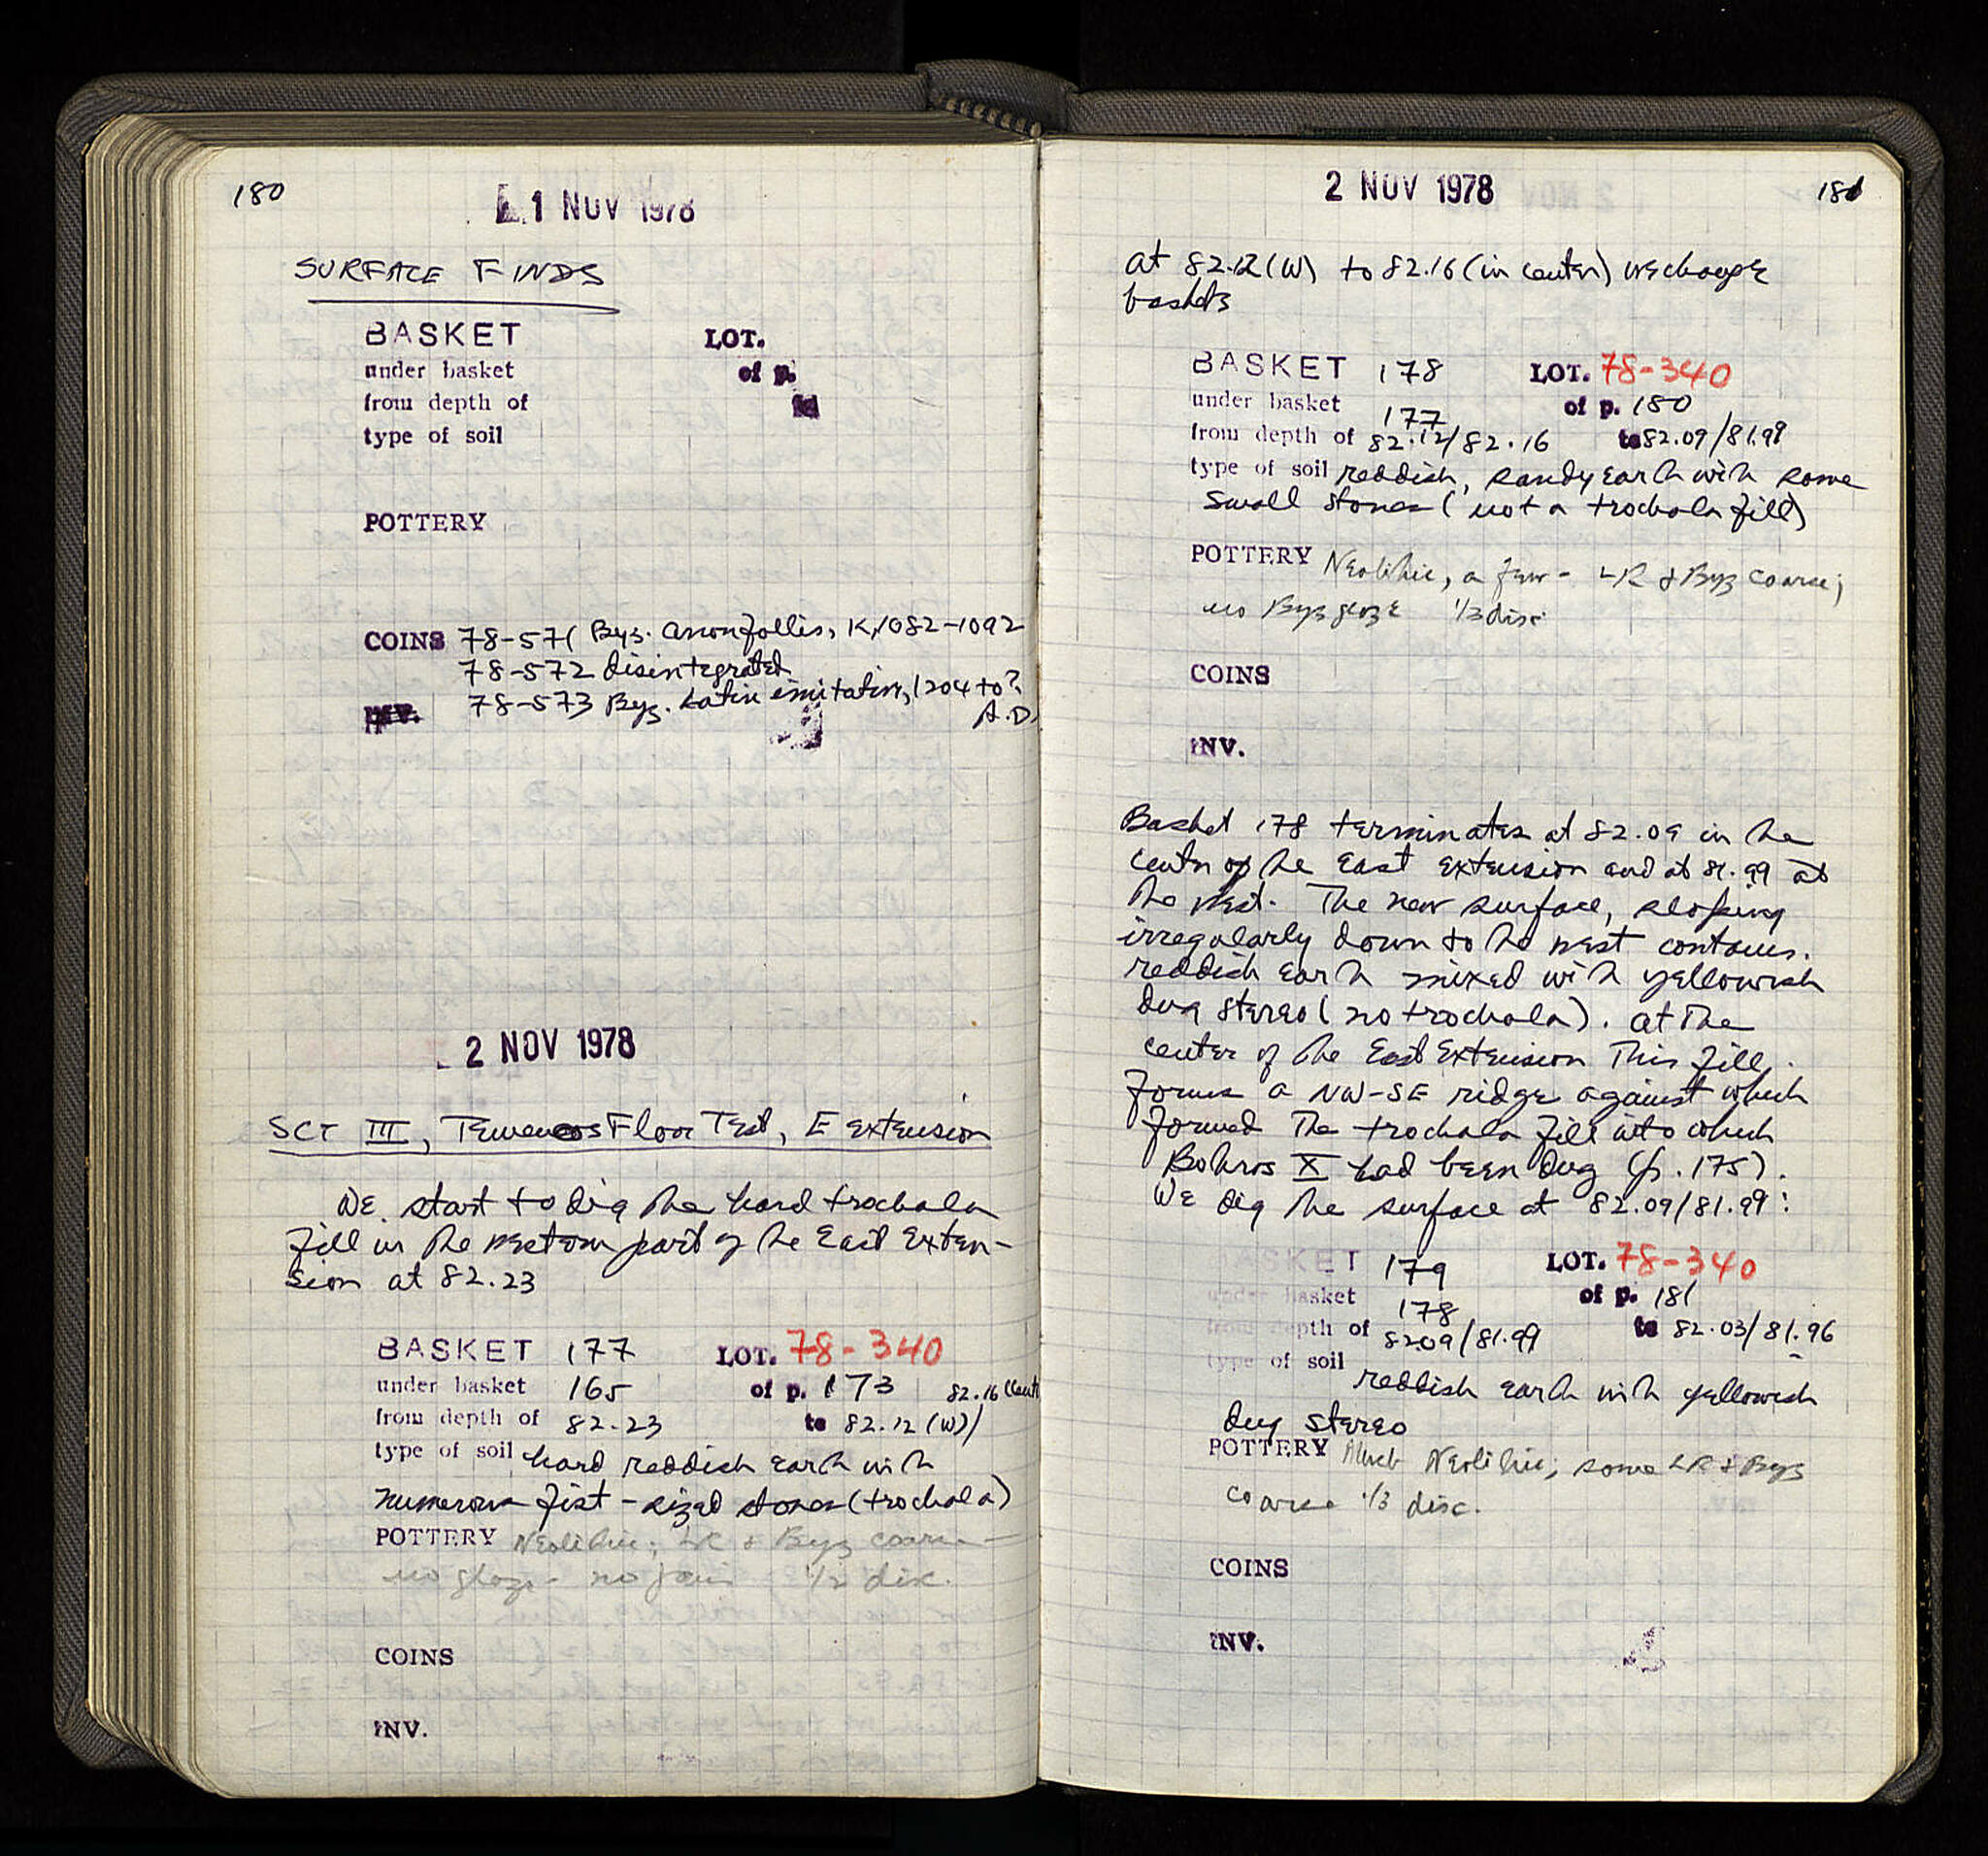 180
1 NOV 1978
SURFACE FINDS
BASKET LOT.
under basket of p.
from depth of to
type of soil
POTTERY
COINS 78-571 Byz. anonfollis, K, 1082-1092
78-572 disintegrated
78-573 Byz. Latin imitation, 1204 to?
INV. A.D.
2 NOV 1978
SCT III, Temenos Floor Test, E Extension
We start to dig the hard trochala
fill in the western part of the East Exten-
sion at 82.23
BASKET 177 LOT. 78-340
under basket 165 of p. 173 82.16 (cent
from depth of 82.23 to 82.12 (W)/
type of soil hard reddish earth with
numerous fist-sized stones (trochala)
POTTERY Neolithic; LR & Byz coarse
no glaze - no join 1/2 disc.
COINS
INV.
2 NOV 1978
181
at 82.12 (W) to 82.16 (in center) we change
baskets
BASKET 178 LOT. 78-340
under basket 177 of p. 180
from depth of 82.12/82.16 to 82.09/81.99
type of soil reddish, sandy earth with some
small stones (not a trochala fill)
POTTERY Neolithic, a few - LR & Byz coarse;
no Byz glaze 1/3 disc.
COINS
INV.
Basket 178 terminates at 82.09 in the
center of the East Extension and at 81.99 at
the west. The new surface, sloping
irregularly down to the west contains.
reddish earth mixed with yellowish
dug stereo (no trochala). at the
center of the East Extension This fill
forms a NW-SE ridge against which
formed The trochala fill into which
Bothros X had been dug (p. 175).
We dig the surface at 82.09/81.99:
BASKET 179 LOT. 78-340
under basket 178 of p. 181
from depth of 82.09/81.99 to 82.03/81.96
type of soil reddish earth with yellowish
dug stereo
POTTERY Much Neolithic; some LR & Byz
coarse 1/3 disc.
COINS
INV.